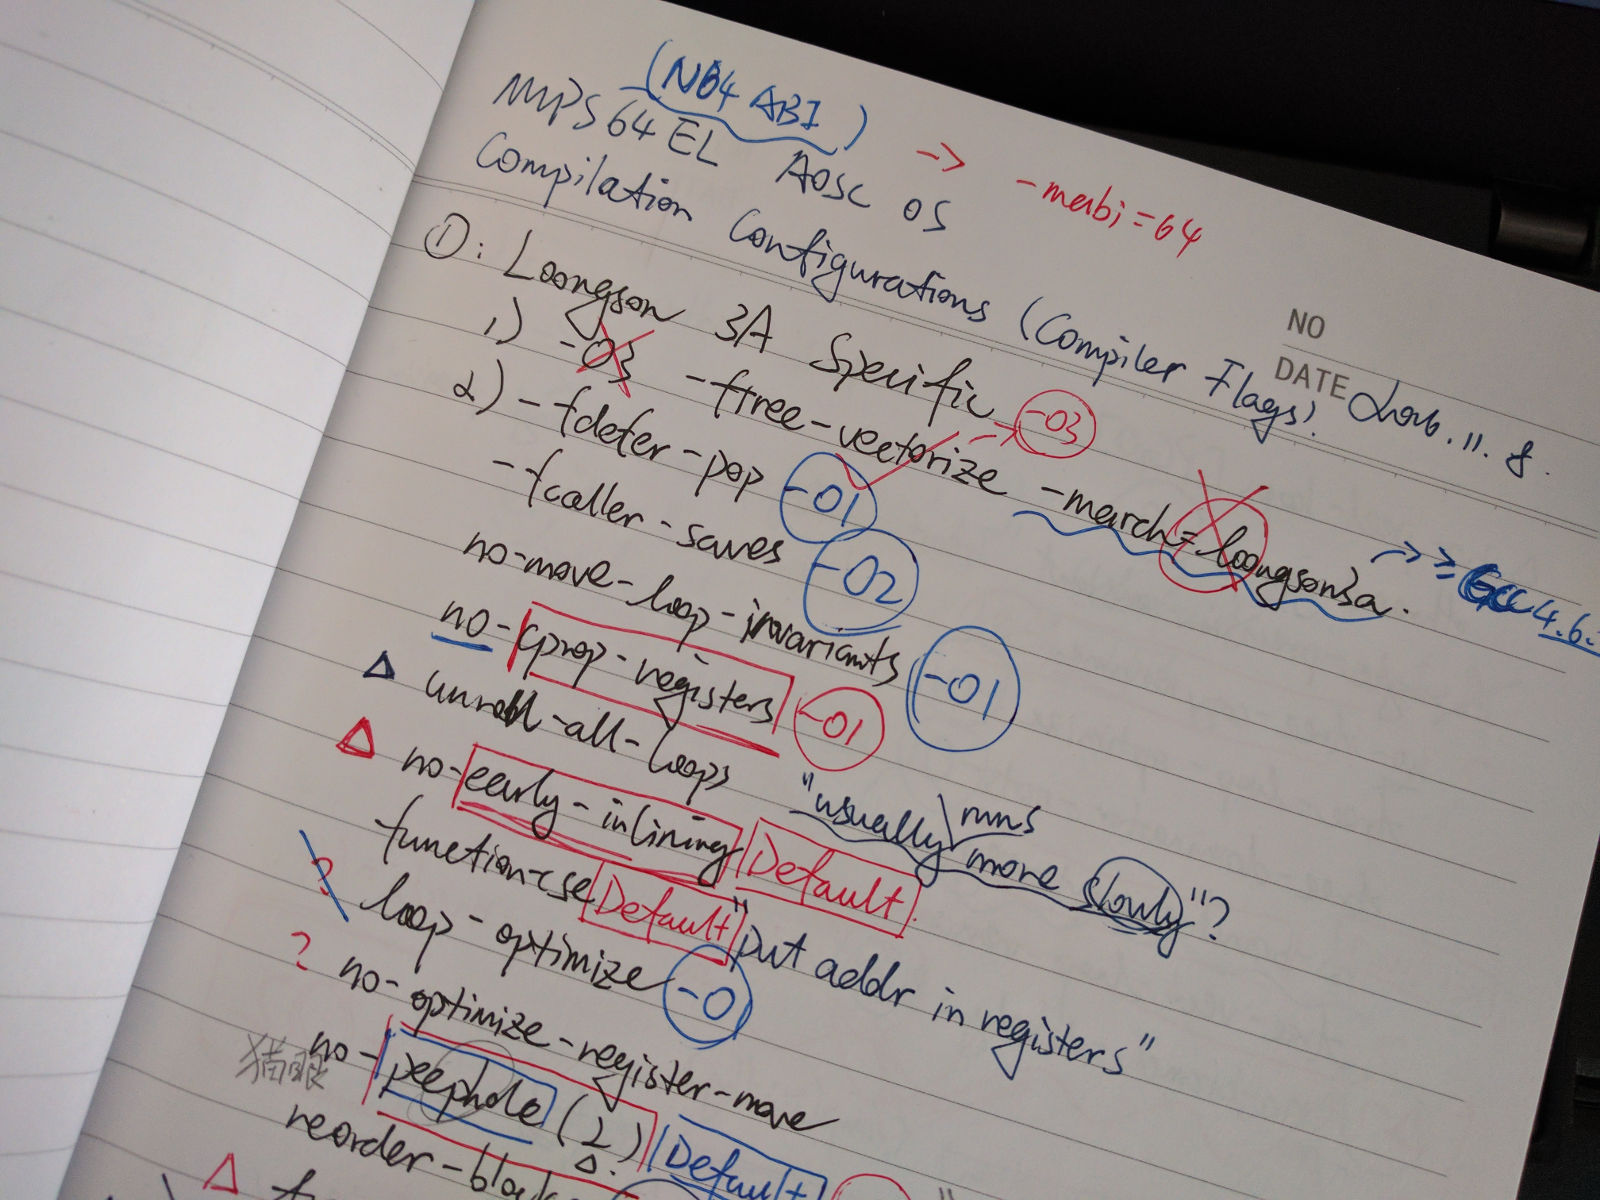 (N64 ABI)
MIPS64EL AOSC OS → -mabi=64
Compilation Configurations (Compiler Flags).
NO
DATE 2016.11.8.
①: Loongson 3A Specific
1) -O3 -ftree-vectorize → -O3 -march=loongson3a. → ≥ GCC 4.6.
2) -fdefer-pop -O1
-fcaller-saves -O2
no-move-loop-invariants -O1
no-cprop-registers -O1
△ unroll-all-loops "usually runs more slowly"?
△ no-early-inlining Default.
function-cse Default "put addr in registers"
? loop-optimize -O1
? no-optimize-register-move
猫眼 no-peephole (2) Default
reorder-block
△